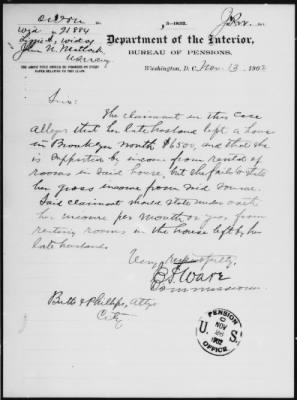 3-1632.
Department of the Interior,
BUREAU OF PENSIONS,
Washington, D. C., Nov. 13, 1902
Wid
21884
widow
John N.
THE ABOVE TITLE SHOULD BE INDORSED ON EVERY
PAPER RELATING TO THIS CLAIM.
Sirs:
The claimant in this case
alleges that her late husband left a house
in Brooklyn worth $6500, and that she
is supported by income from rental of
rooms in said house, but she fails to state
her gross income from said source.
Said claimant should state under oath
her income per month or year from
renting rooms in the house left by her
late husband.
Very respectfully,
Ware
Commissioner.
Butts & Phillips, Attys
City
PENSION
U. S.
NOV
1902
OFFICE